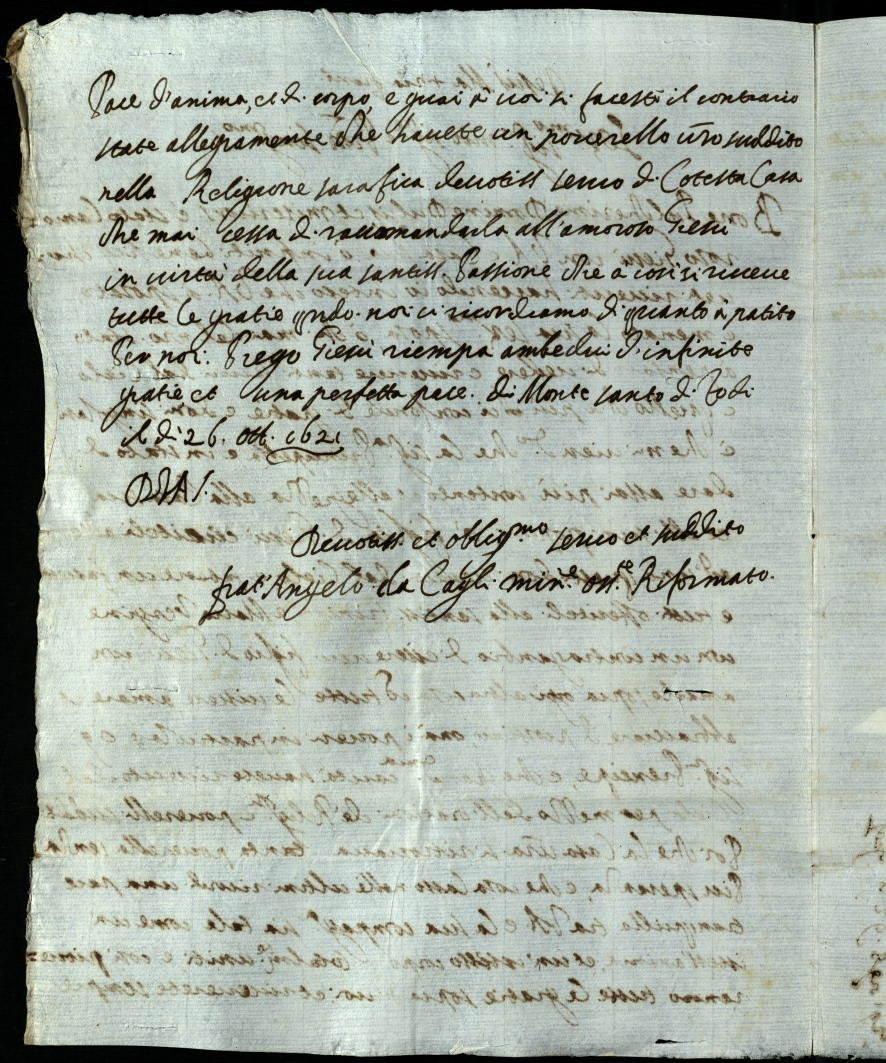 Pace d'anima, et di corpo, e guai à voi si facesti il contrario
state allegramente che havete un poverello vr̃o suddito
nella Religione sarafica devotiss servo di Cotesta Casa
che mai cessa di raccomandarla all'amoroso Giesu
in virtu della sua santiss. Passione che a cosi si riceve
tutte le gratie qndo noi ci ricordiamo di quanto à patito
Per noi. Prego Giesu riempa ambedui d'infinite
gratie et una perfetta pace. di Monte santo di Todi
il di 26. ott. 1621
Devotiss. et oblig.mo servo et suddito
frat' Angelo da Cagli min.e oss.te Riformato.